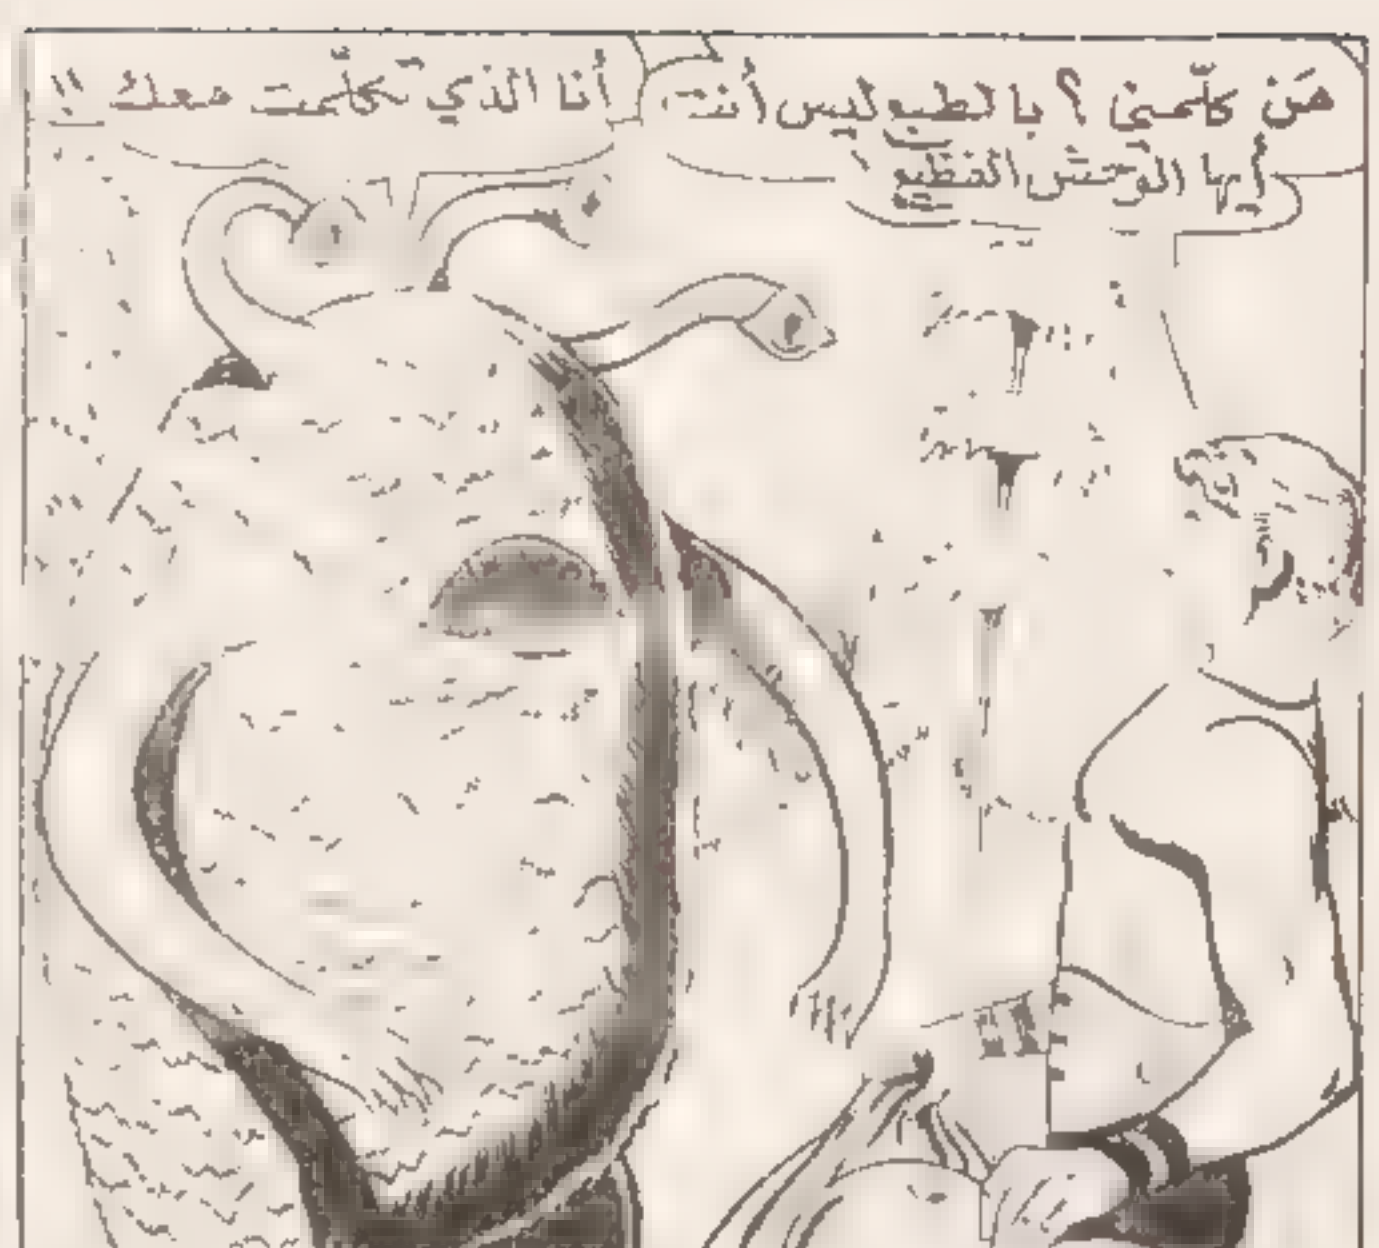 مَن كلّمني ؟ بالطبع ليس أنت
أيها الوحش الفظيع
أنا الذي تكلّمت معك !!